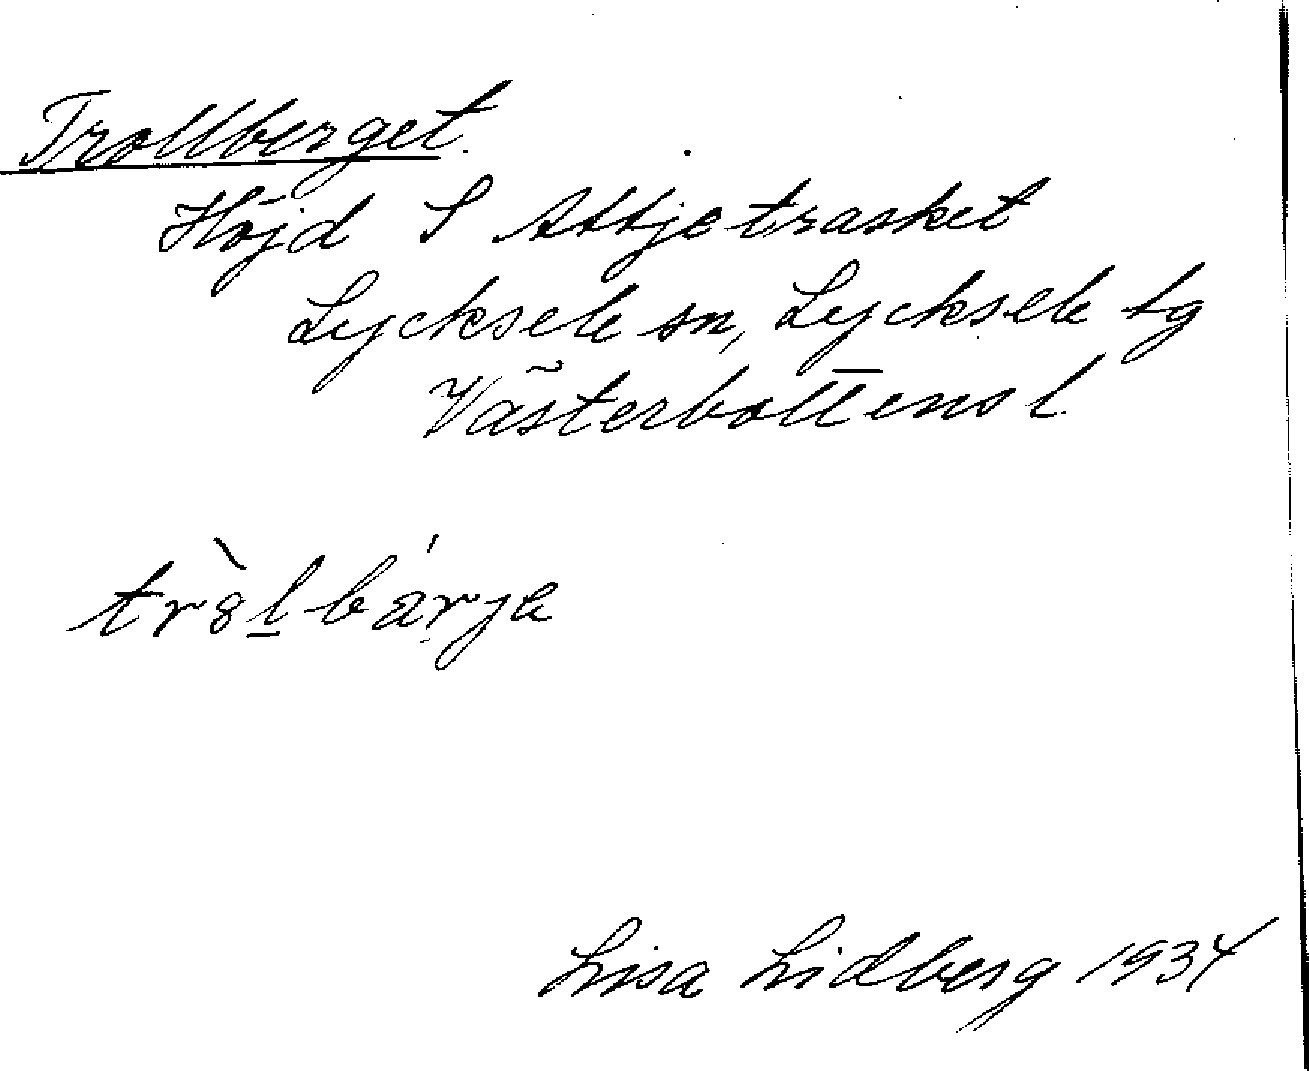 Trollberget.
Höjd S Attjeträsket
Lycksele sn, Lycksele tg
Västerbottens l.
tròl̲bárja
Lisa Lidberg 1934